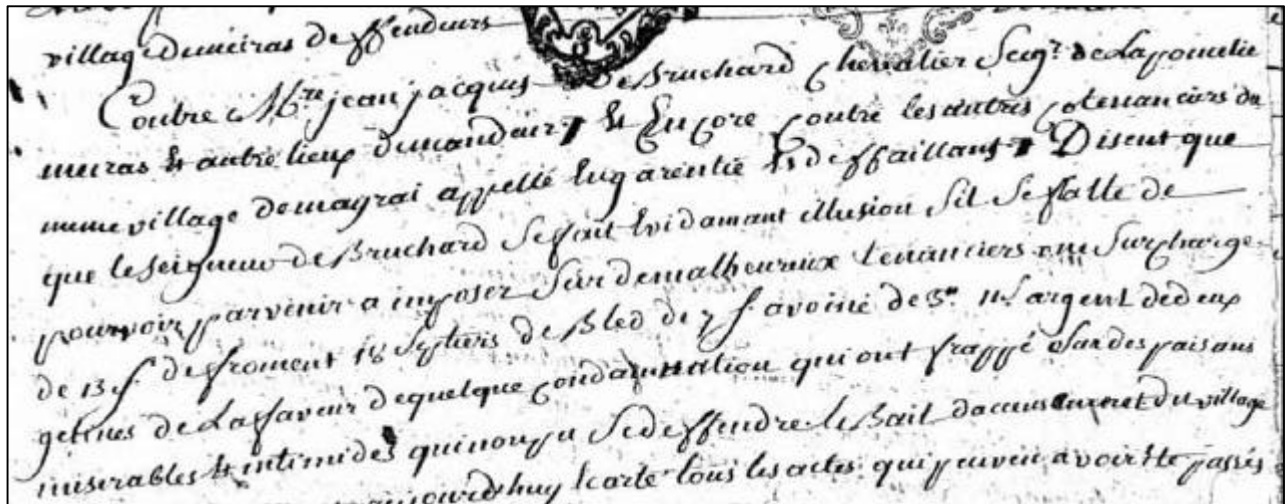 village de meiras deffendeurs
Contre Mre jean jacques De Bruchard Chevalier Seigr de La pomelie
meiras et autre lieux demandeur et Encore Contre les autres cotenanciers du
meme village de magrai appellé En garentie et deffaillants Disent que
que le seigneur de Bruchard se fait Evidamant illusion sil se flatte de
pourvoir parvenir a imposer sur de malheureux tenanciers une surcharge
de 13 s de froment 18 septiers de Bled de 7 s avoine de 3# 11s argent de deux
gelines de La faveur de quelque condamnation qui ont frappé sur des paisans
miserables et intimides qui nont pu se deffendre le Bail daccensement du village
aujourdhuy Ecarte tous les actes qui peuvent avoir ete passés